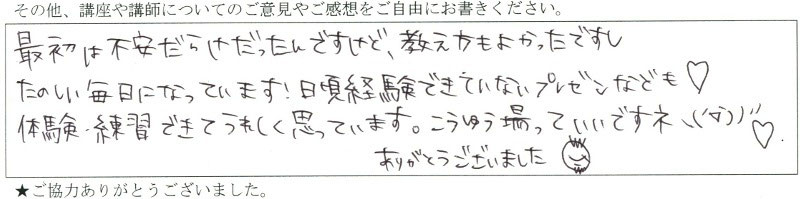 その他、講座や講師についてのご意見やご感想をご自由にお書きください。
最初は不安だらけだったんですけど、教え方もよかったですし
たのしい毎日になっています!日頃経験できていないプレゼンなども♡
体験、練習できてうれしく思っています。こうゆう場っていいですネ、(´▽`)ノ"♡
ありがとうございました
★ご協力ありがとうございました。